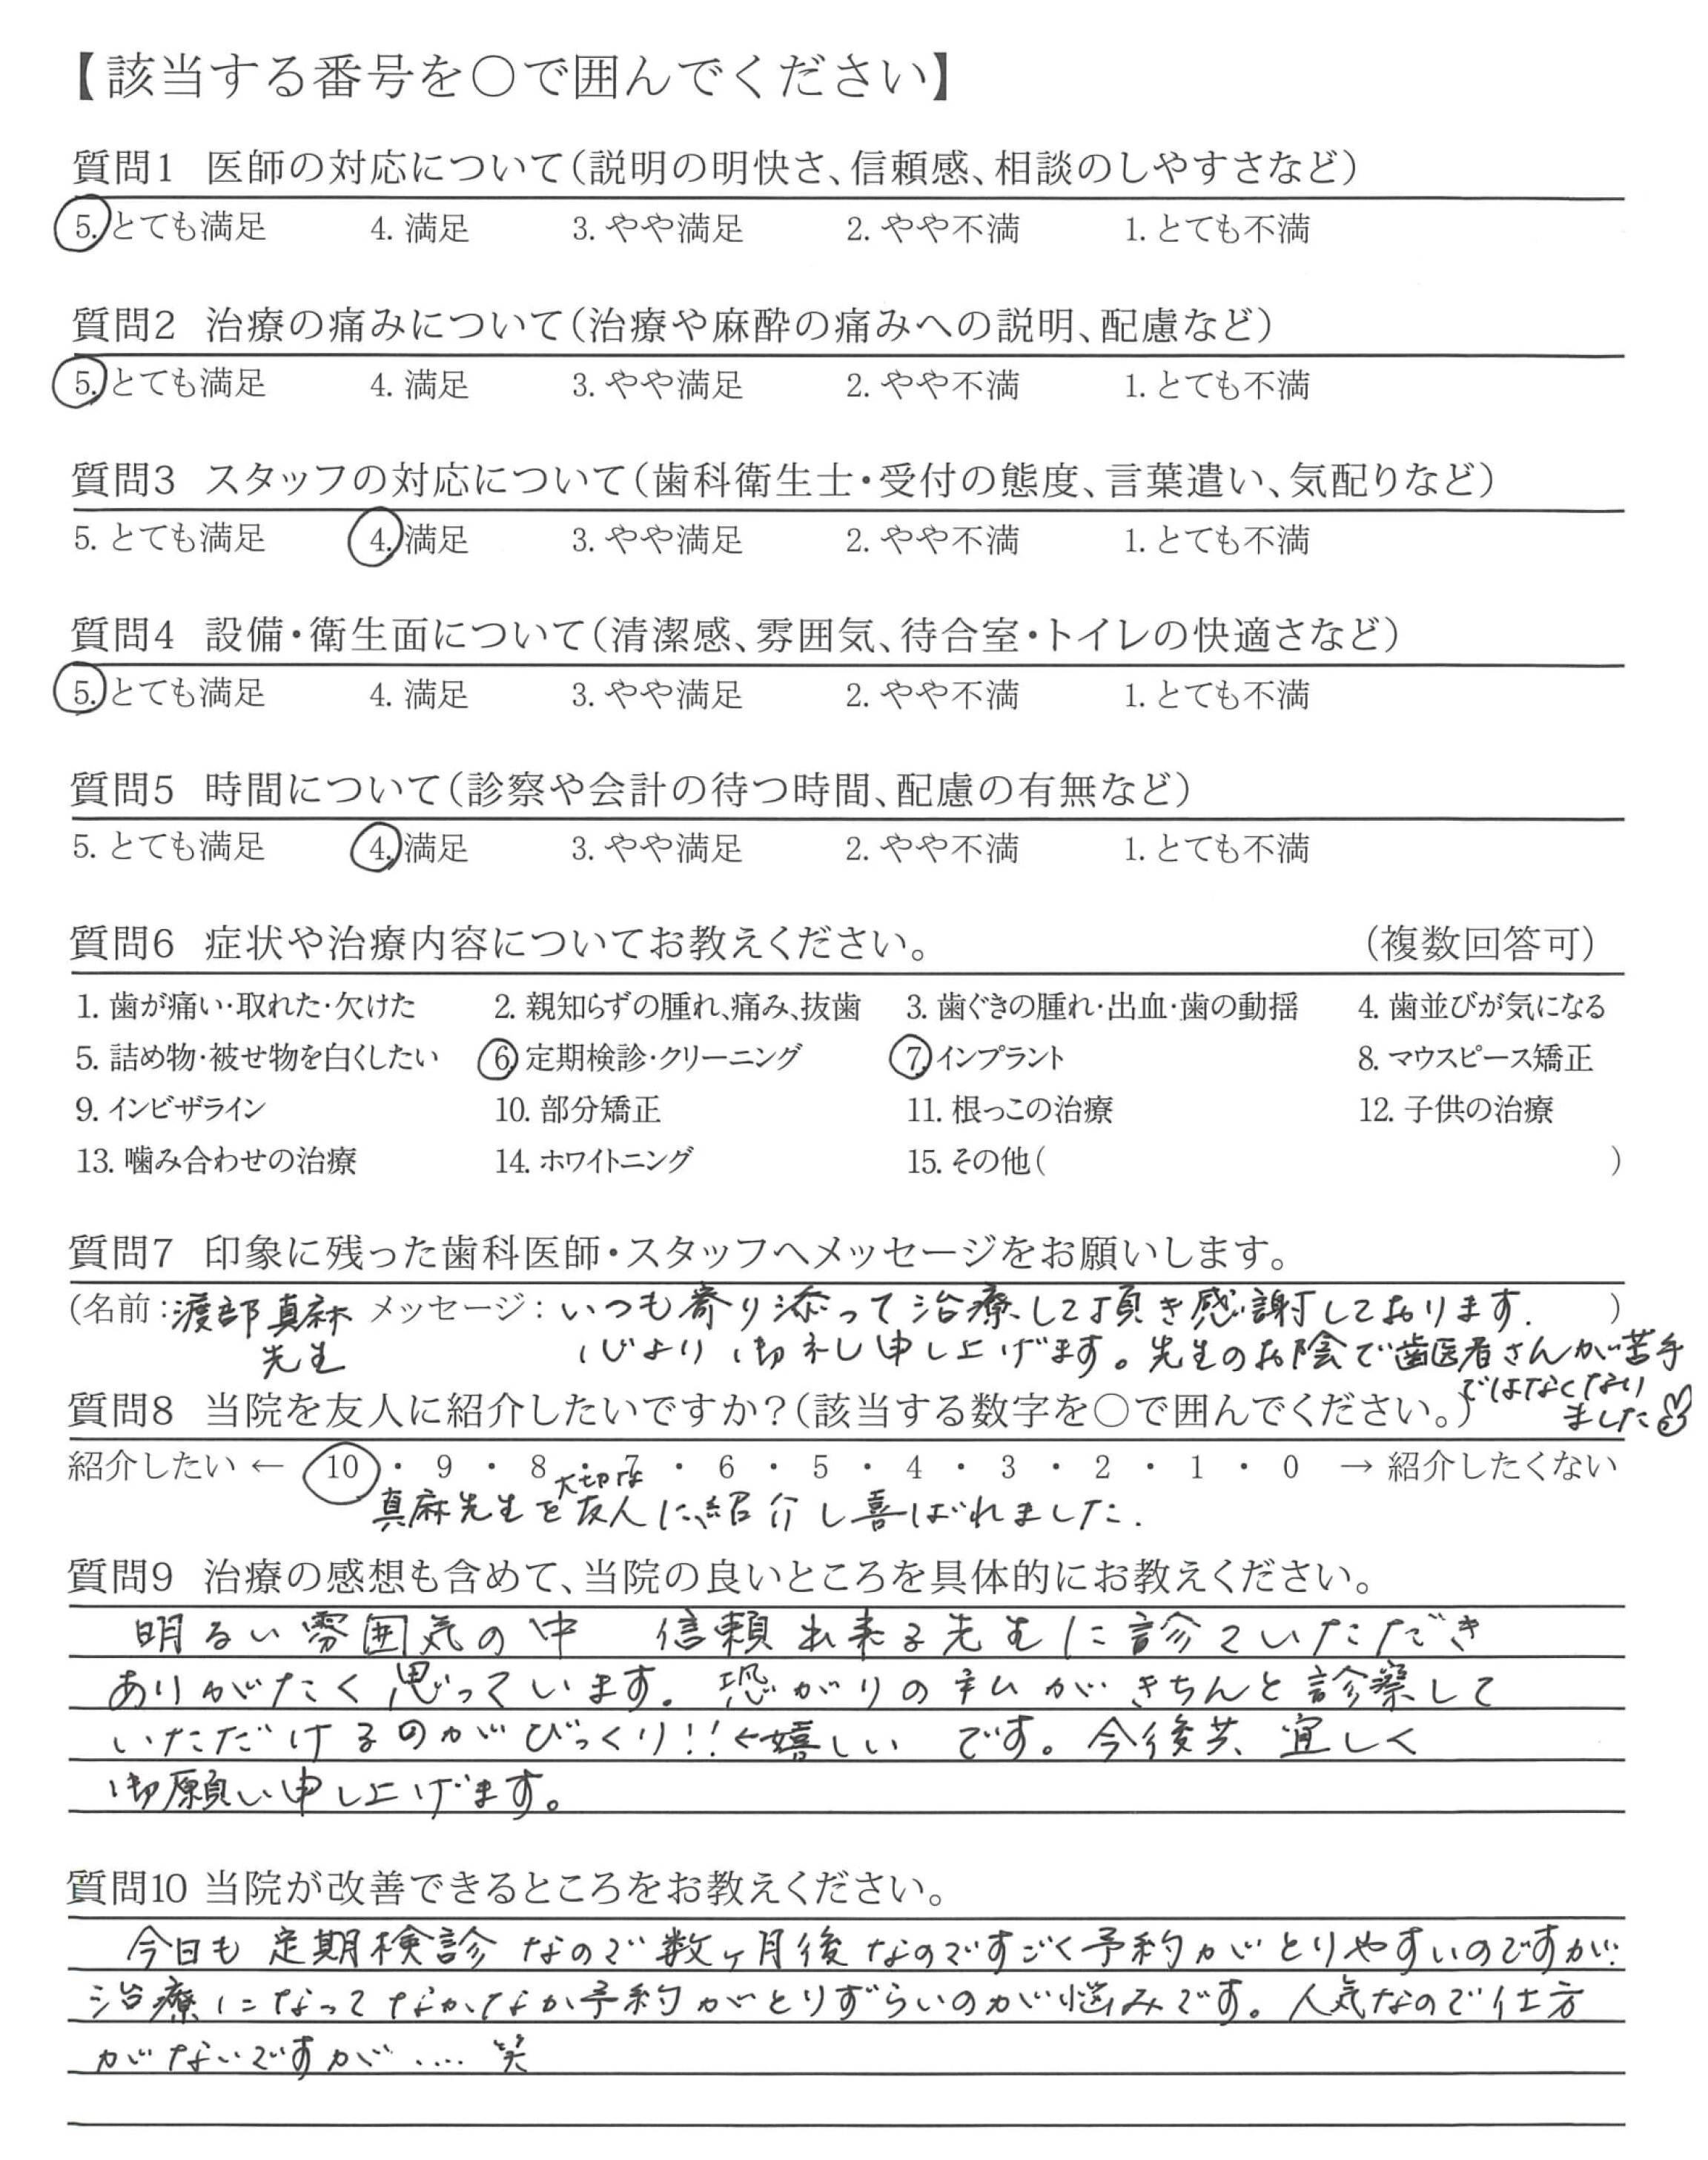 【該当する番号を○で囲んでください】
質問1 医師の対応について(説明の明快さ、信頼感、相談のしやすさなど)
5. とても満足 4. 満足 3. やや満足 2. やや不満 1. とても不満
質問2 治療の痛みについて(治療や麻酔の痛みへの説明、配慮など)
5. とても満足 4. 満足 3. やや満足 2. やや不満 1. とても不満
質問3 スタッフの対応について(歯科衛生士・受付の態度、言葉遣い、気配りなど)
5. とても満足 4. 満足 3. やや満足 2. やや不満 1. とても不満
質問4 設備・衛生面について(清潔感、雰囲気、待合室・トイレの快適さなど)
5. とても満足 4. 満足 3. やや満足 2. やや不満 1. とても不満
質問5 時間について(診察や会計の待つ時間、配慮の有無など)
5. とても満足 4. 満足 3. やや満足 2. やや不満 1. とても不満
質問6 症状や治療内容についてお教えください。 (複数回答可)
1. 歯が痛い・取れた・欠けた 2. 親知らずの腫れ、痛み、抜歯 3. 歯ぐきの腫れ・出血・歯の動揺 4. 歯並びが気になる
5. 詰め物・被せ物を白くしたい 6. 定期検診・クリーニング 7. インプラント 8. マウスピース矯正
9. インビザライン 10. 部分矯正 11. 根っこの治療 12. 子供の治療
13. 噛み合わせの治療 14. ホワイトニング 15. その他( )
質問7 印象に残った歯科医師・スタッフへメッセージをお願いします。
(名前:渡部真麻 メッセージ: いつも寄り添って治療して頂き感謝しております. )
先生 心より御礼し申し上げます。先生のお陰で歯医者さんが苦手
ではなくなり
ました
質問8 当院を友人に紹介したいですか?(該当する数字を○で囲んでください。)
紹介したい ← 10 ・ 9 ・ 8 ・ 7 ・ 6 ・ 5 ・ 4 ・ 3 ・ 2 ・ 1 ・ 0 → 紹介したくない
大切な
真麻先生を友人に紹介し喜ばれました.
質問9 治療の感想も含めて、当院の良いところを具体的にお教えください。
明るい雰囲気の中 信頼出来る先生に診ていただき
ありがたく思っています。恐がりの私がきちんと診察して
いただけるのがびっくり!!←嬉しい です。今後共、宜しく
御願い申し上げます。
質問10 当院が改善できるところをお教えください。
今日も定期検診なので数ヶ月後なのですごく予約がとりやすいのですが
治療になってなかなか予約がとりずらいのが悩みです。人気なので仕方
がないですが.... 笑